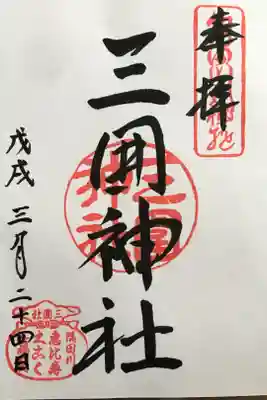 奉拝
三囲神社
戊戌 三月二十四日
三囲社
隅田川
恵比寿
大こく